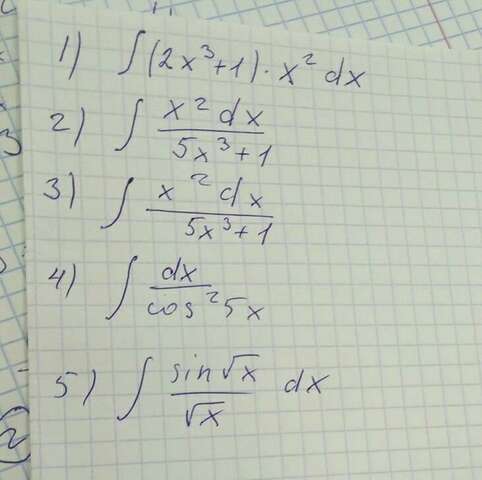 1) ∫(2x³+1)·x² dx
2) ∫ x² dx / 5x³+1
3) ∫ x² dx / 5x³+1
4) ∫ dx / cos² 5x
5) ∫ sin√x / √x dx